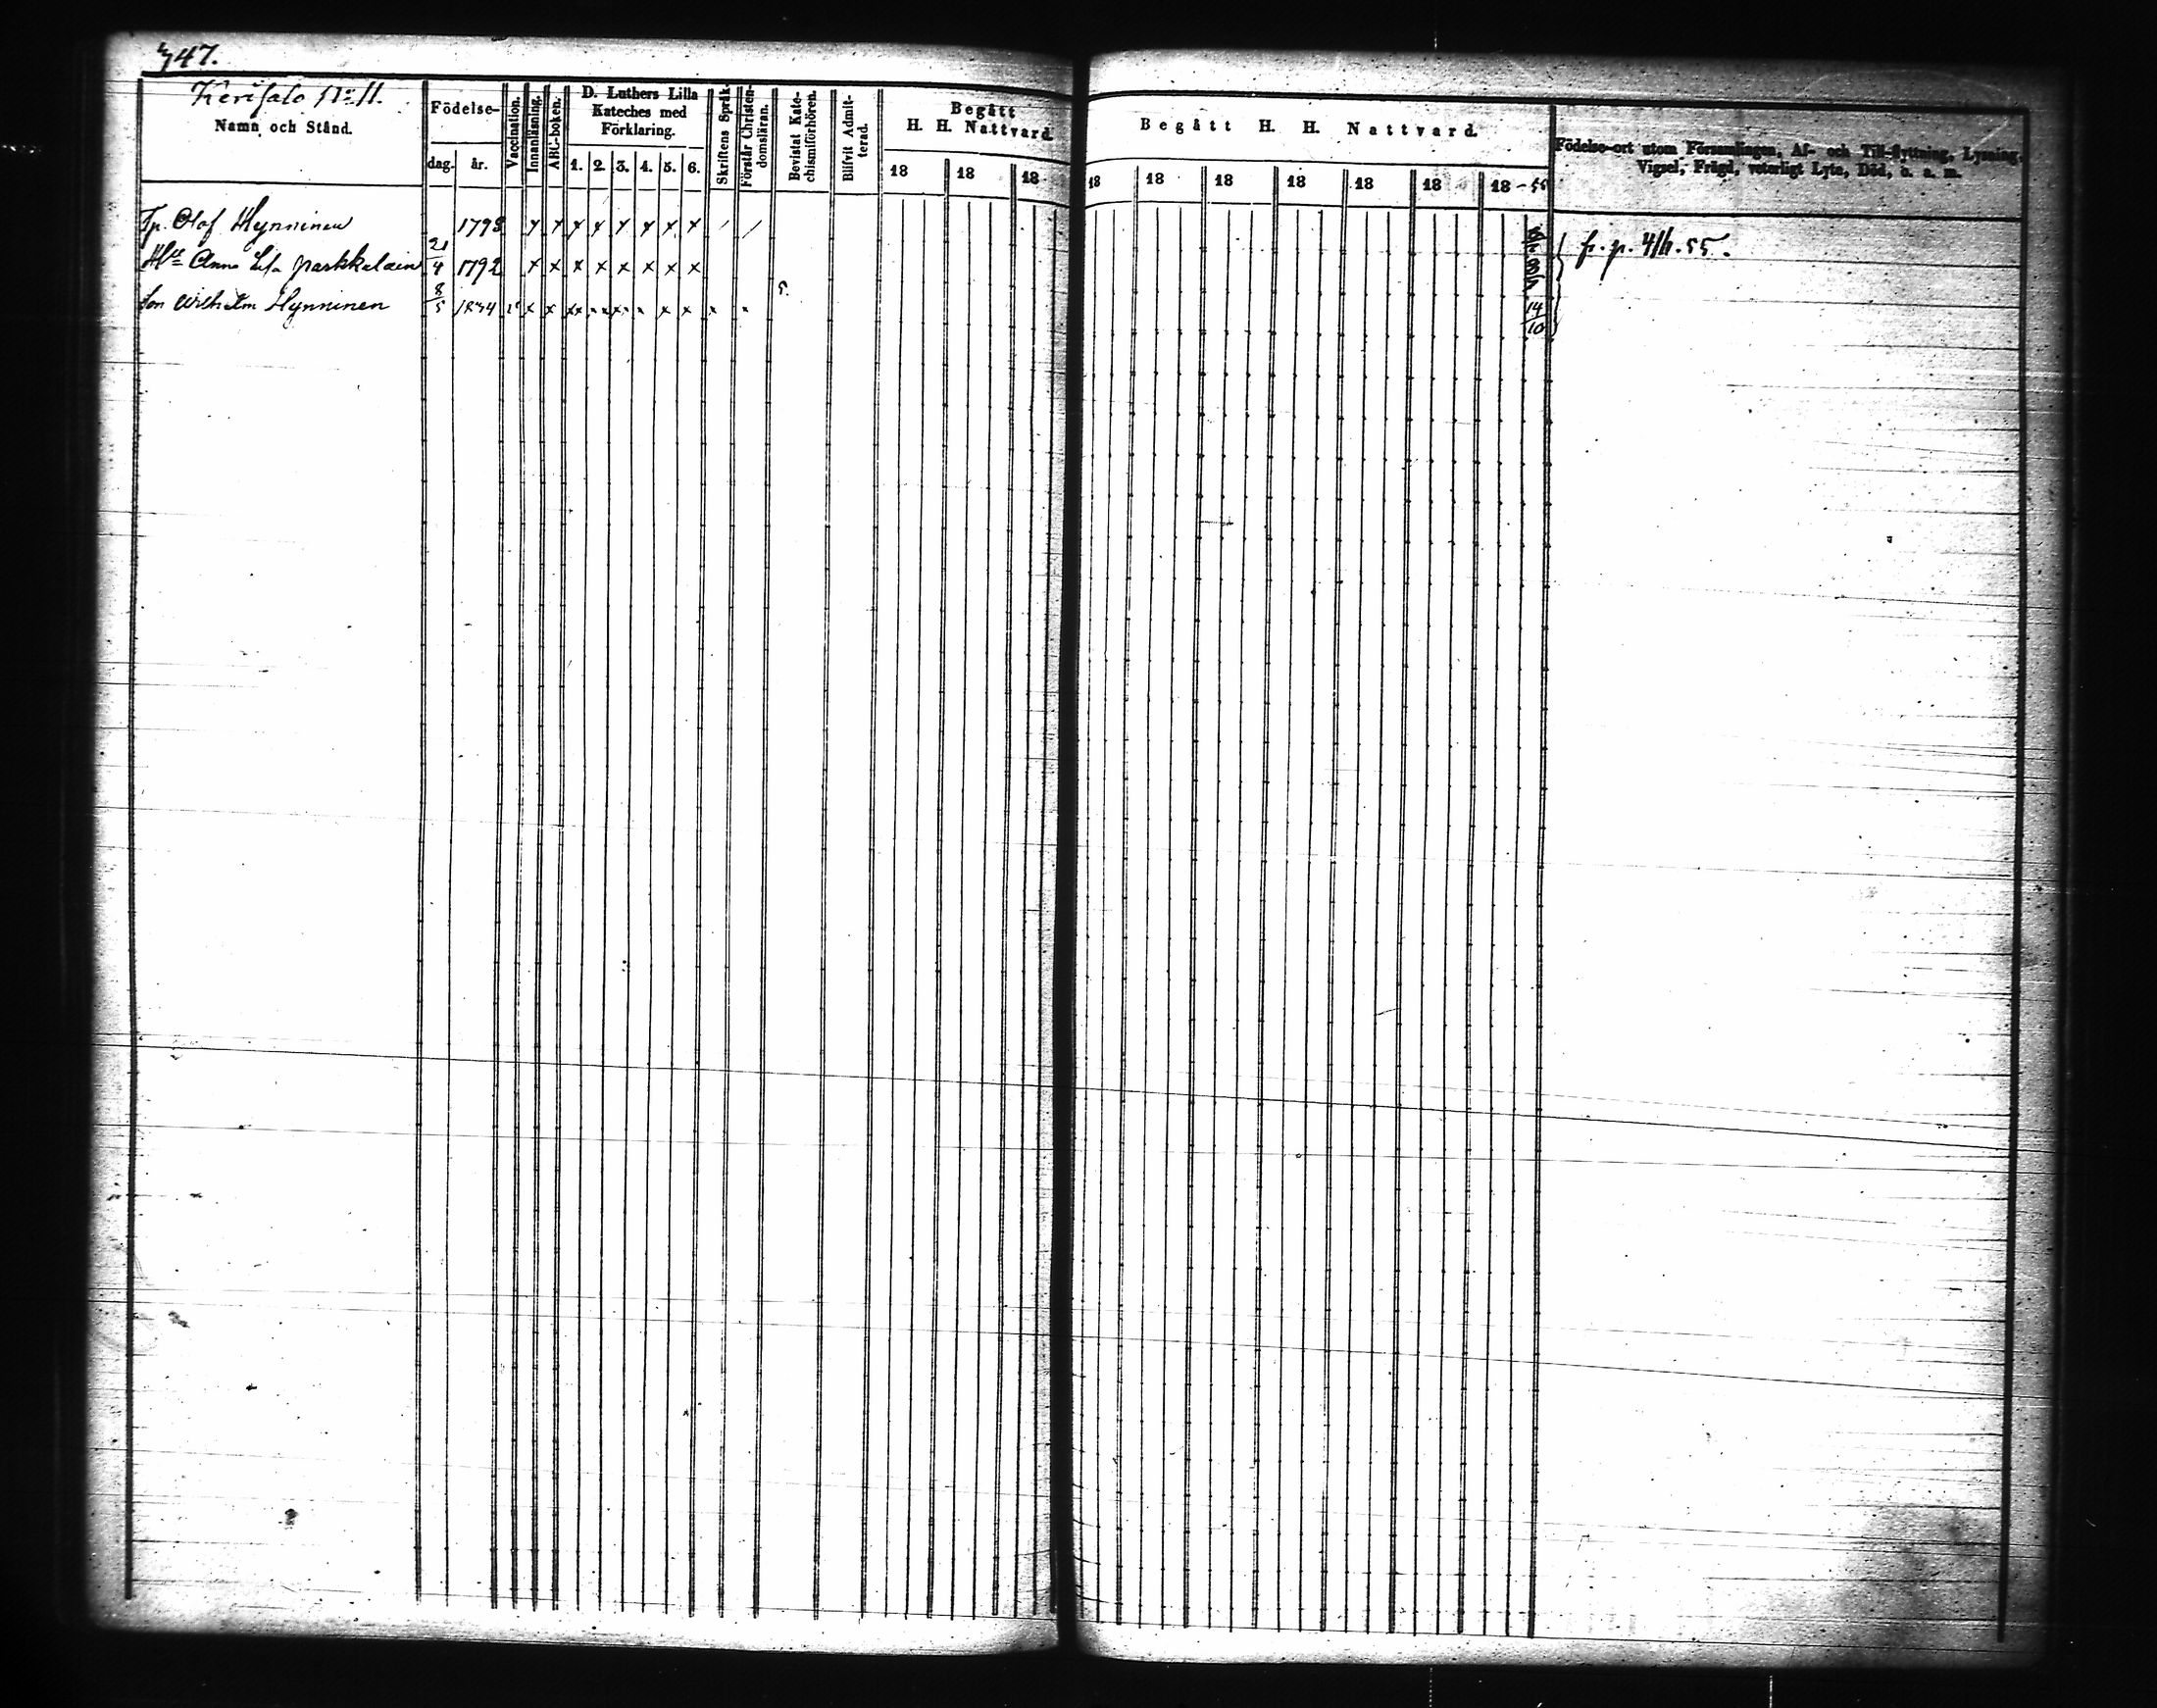 747.
Kerisalo No 11.
Namn och Stånd.
Födelse-
dag. år.
Vaccination.
Innanläsning.
ABC-boken.
D. Luthers Lilla
Kateches med
Förklaring.
1. 2. 3. 4. 5. 6.
Skriftens Språk.
Förstår Christen-
domsläran.
Bevistat Kate-
chismiförhören.
Blifvit Admit-
terad.
Begått
H. H. Nattvard.
18 18 18
Begått H. H. Nattvard.
18 18 18 18 18 18 18-55
Födelse-ort utom Församlingen, Af- och Till-flyttning, Lysning,
Vigsel, Frägd, veterligt Lyte, Död, o. a. m.
Tp. Olof Hynninen 1798 x x x x x x x x / /
Anna Lisa Parkkalain 21/4 1792 x x x x x x x x
fr. p. 55.
Son Wilhelm Hynninen 8/5 1834 x x x x 5. 14/10